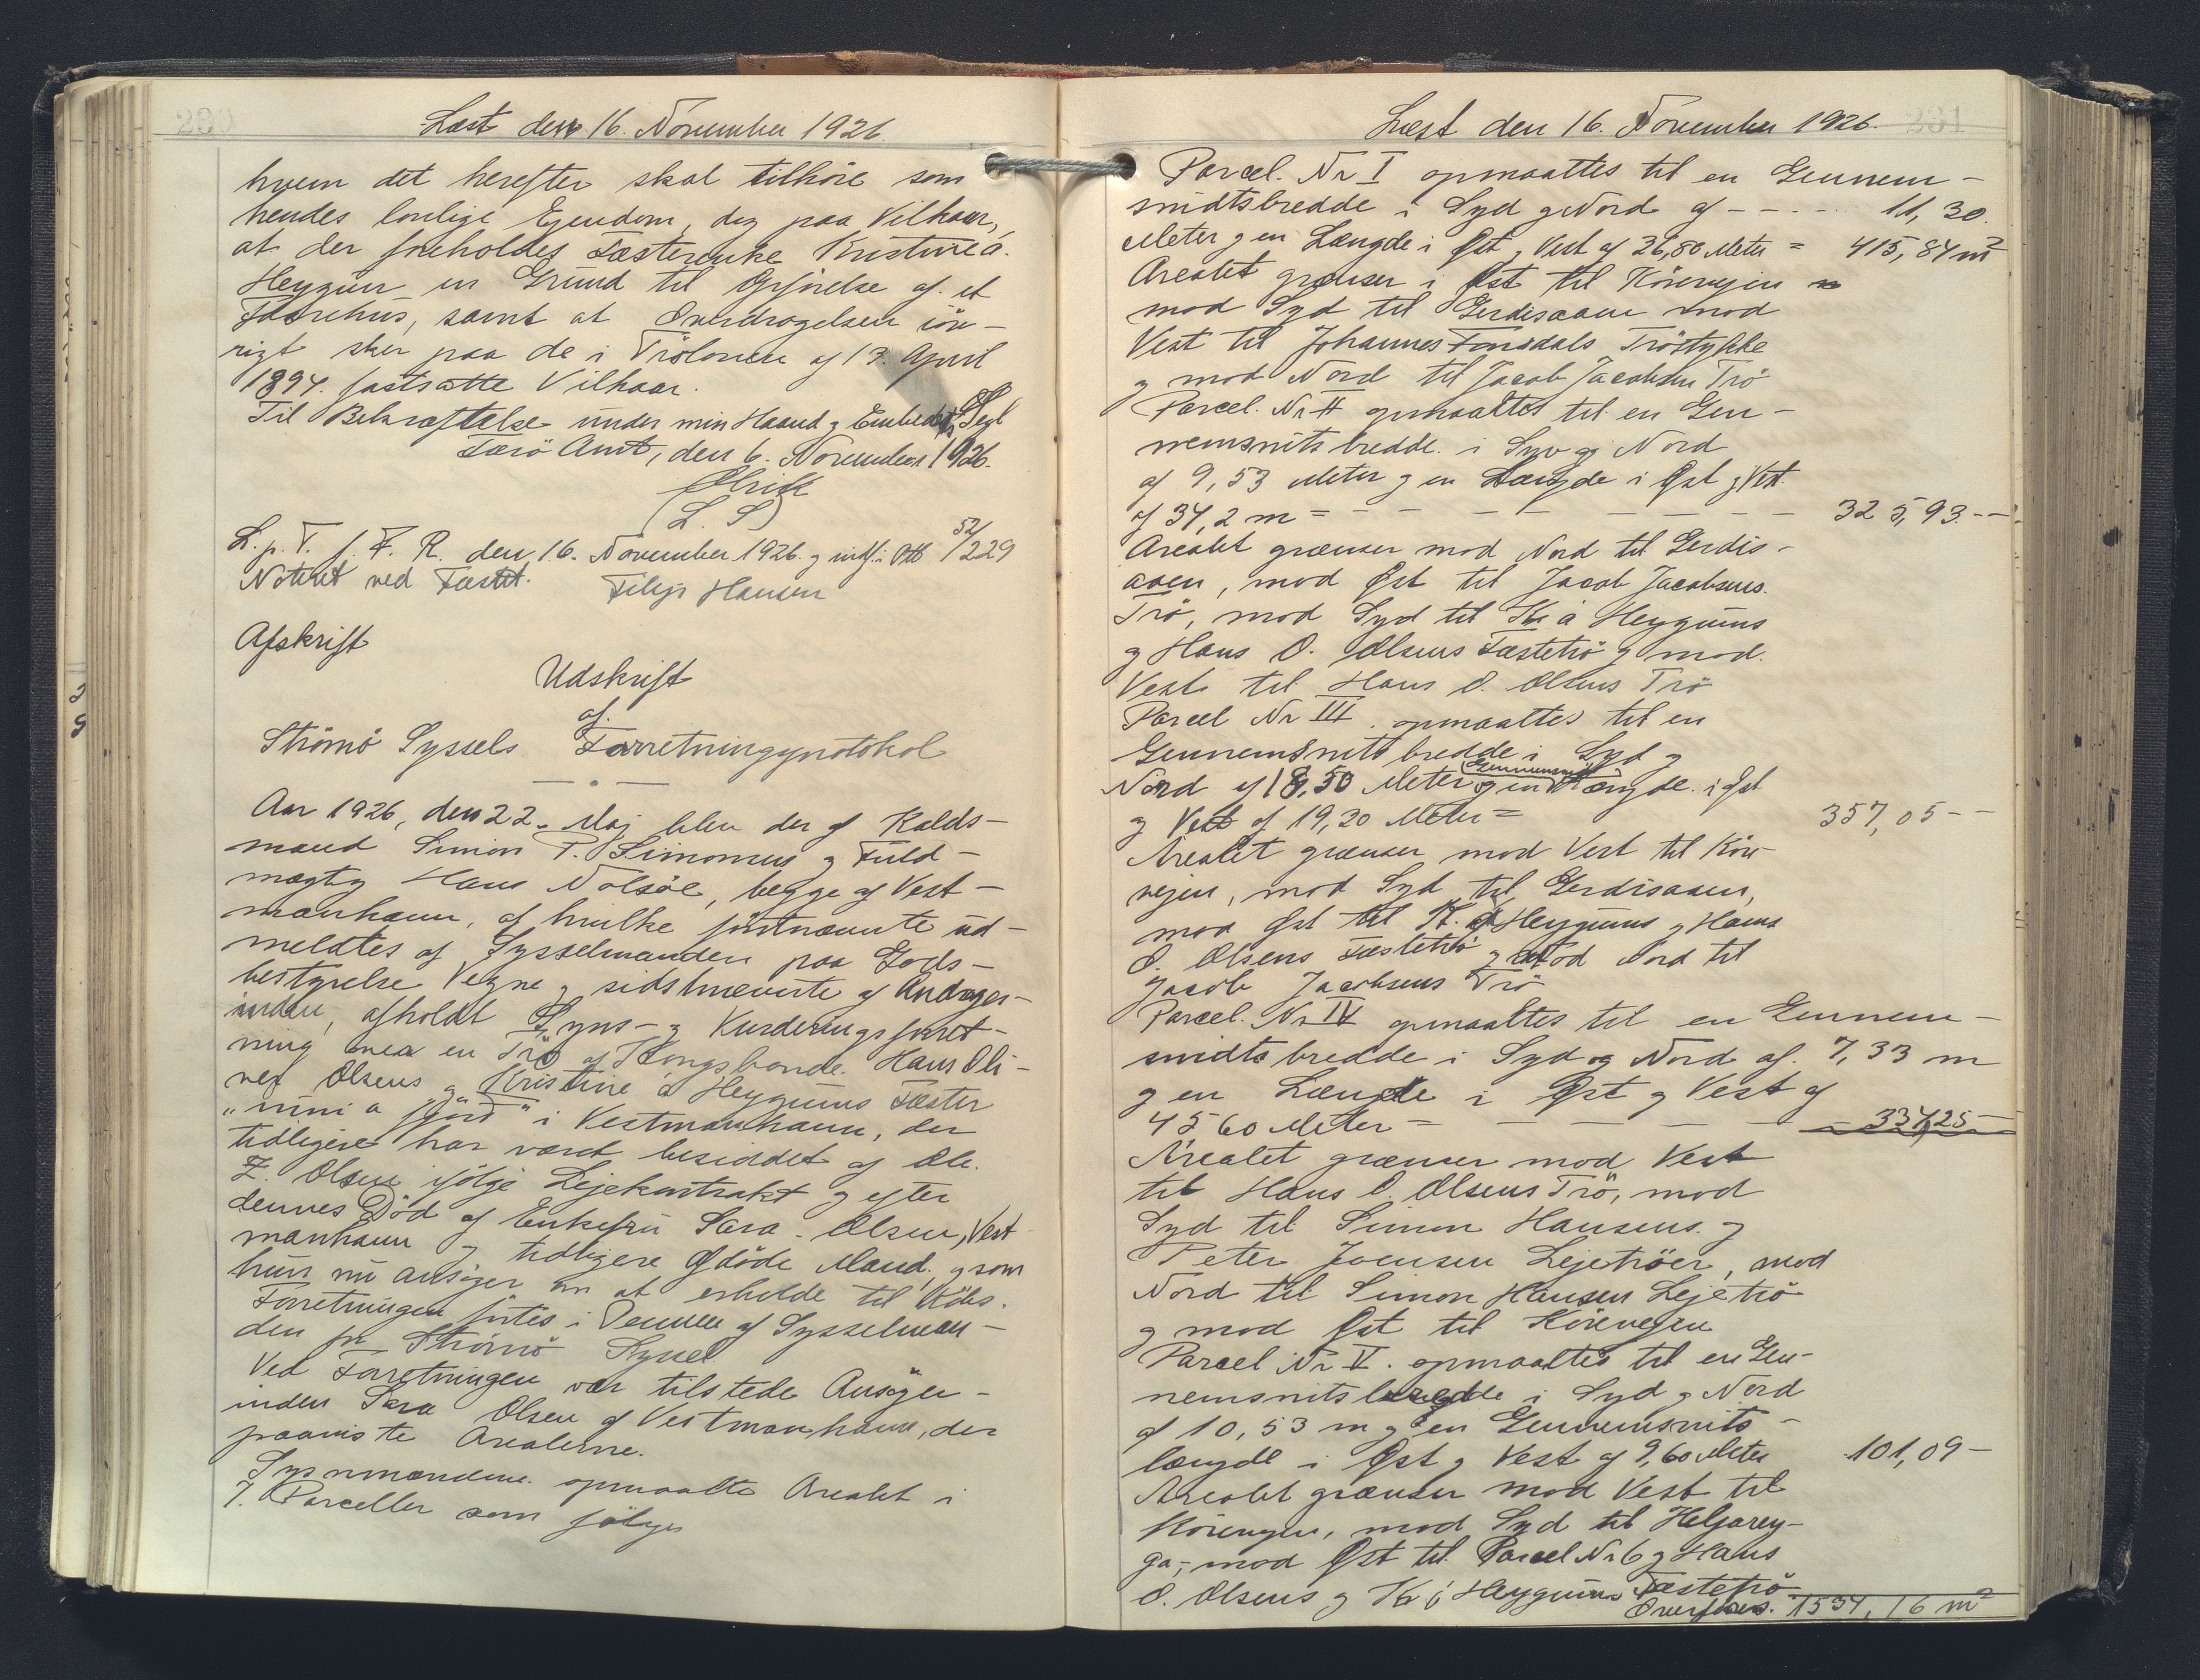 Læst den 16. November 1926.
hvem det herefter skal tilhöre som
hendes lovlige Ejendom, dog paa Vilkaar,
at der forbeholdes Fæsterenke Kristine á
Heygum en Grund til Opförelse af et
Faarehus, samt at Overdragelsen iöv-
rigt sker paa de i Tröloven af 13. April
1894. fastsatte Vilkaar.
Til Bekræftelse under min Haand og Embedets Segl
Færö Amt, den 6. November 1926.
Ølrik
(L. S)
L. p. T. f. F. R. den 16. November 1926. og indf. i Otb 52/229
Noteret ved Fæstet. Filip Hansen
Afskrift
Udskrift
af.
Strömö Syssels Forretningsprotokol
Aar 1926, den 22. Maj blev der af Kalds-
mand Simon P. Simonsens og Fuld-
mægtig Hans Nolsöe, begge af Vest-
manhavn, af hvilke förstnævnte ud-
meldtes af Sysselmanden paa Gods-
bestyrelse Vegne og sidstnævnte af Andrager-
inden, afholdt Syns- og Vurderingsforret-
ning over en Trö af Kongsbonde Hans Oli-
ver Olsens og Kristine á Heygums Fæster
"inni á fjörd" i Vestmanhavn, der
tidligere har været besiddet af Ole
Z. Olsen ifölge Lejekontrakt og efter
dennes Död af Enkefru Sara Olsen, Vest
manhavn og tidligere afdöde Mand, og som
hun nu ansöger om at erholde til Köbs.
Forretningen förtes i Pennen af Sysselman-
den for Strömö Syssel
Ved Forretningen var tilstede Ansöger-
inden Sara Olsen af Vestmanhavn, der
paaviste Arealerne.
Synsmændene opmaalte Arealet i
7. Parceller som fölger
Læst den 16. November 1926.
Parcel. Nr I opmaaltes til en Gennem-
snidtsbredde i Syd og Nord af - - - - 11,30.
Meter og en Længde i Øst og Vest af 36,80 Meter = 415,84 m²
Arealet grænser i Øst til Körevejen
mod Syd til Gerdisaaen mod
Vest til Johannes Fonsdals Tröstykke
og mod Nord til Jacob Jacobsen Trö
Parcel. Nr II opmaaltes til en Gen-
nemsnitsbredde i Syd og Nord
af 9,53 Meter og en Længde i Øst og Vest.
af 34,2 m = - - - - - - - 325,93. - -
Arealet grænser mod Nord til Gerdis-
aaen, mod Øst til Jacob Jacobsens.
Trö, mod Syd til Kr á Heygums
og Hans O. Olsens Fæstetrö og mod.
Vest til Hans O. Olsens Trö
Parcel Nr III. opmaaltes til en
Gennemsnitsbredde i Syd og
Nord af 18,50 Meter og en Gennemsnit Længde. i Øst
og Vest af 19,30 Meter = 357,05 - -
Arealet grænser mod Vest til Köre-
vejen, mod Syd til Gerdisaaen,
mod Øst til K. á Heygums og Hans
O. Olsens Fæstetrö og mod Nord til
Jacob Jacobsens Trö
Parcel. Nr IV opmaaltes til en Gennem-
snidtsbredde i Syd og Nord af. 7,33 m
og en Længde i Øst og Vest af
45 60 Meter = - - - - 334,25 -
Arealet grænser mod Vest
til Hans O. Olsens Trö, mod
Syd til Simon Hansens. og
Peter Joensen Lejetröer, mod
Nord til Simon Hansen Lejetrö
og mod Øst til Körevejen
Parcel Nr V. opmaaltes til en Gen-
nemsnitsbredde i Syd og Nord
af 10,53 m og en Gennemsnits-
længde i Øst og Vest af 9,60 Meter 101,09 -
Arealet grænser mod Vest til
Körevejen, mod Syd til Heljarey-
ga, mod Øst til Parcel Nr 6 og Hans
O. Olsens og Kr á Heygums Fæstetrö
Overföres. 1534,16 m²